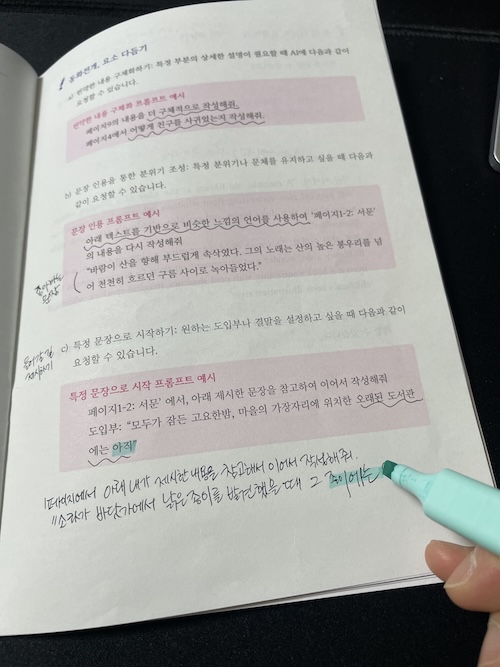 동화전개, 요소 다듬기
a) 빈약한 내용 구체화하기: 특정 부분의 상세한 설명이 필요할 때 AI에 다음과 같이
요청할 수 있습니다.
빈약한 내용 구체화 프롬프트 예시
페이지9의 내용을 더 구체적으로 작성해줘.
페이지4에서 어떻게 친구를 사귀었는지 작성해줘.
b) 문장 인용을 통한 분위기 조성: 특정 분위기나 문체를 유지하고 싶을 때 다음과
같이 요청할 수 있습니다.
문장 인용 프롬프트 예시
아래 텍스트를 기반으로 비슷한 느낌의 언어를 사용하여 '페이지1-2: 서문'
의 내용을 다시 작성해줘
"바람이 산을 향해 부드럽게 속삭였다. 그의 노래는 산의 높은 봉우리를 넘
어 천천히 흐르던 구름 사이로 녹아들었다."
c) 특정 문장으로 시작하기: 원하는 도입부나 결말을 설정하고 싶을 때 다음과 같이
요청할 수 있습니다.
특정 문장으로 시작 프롬프트 예시
페이지1-2: 서문' 에서, 아래 제시한 문장을 참고하여 이어서 작성해줘
도입부: "모두가 잠든 고요한밤, 마을의 가장자리에 위치한 오래된 도서관
에는 아직"
1페이지에서 아래 내가 제시한 내용을 참고해서 이어서 작성해줘.
"소라가 바닷가에서 낡은 종이를 발견했을 때 그 종이에는